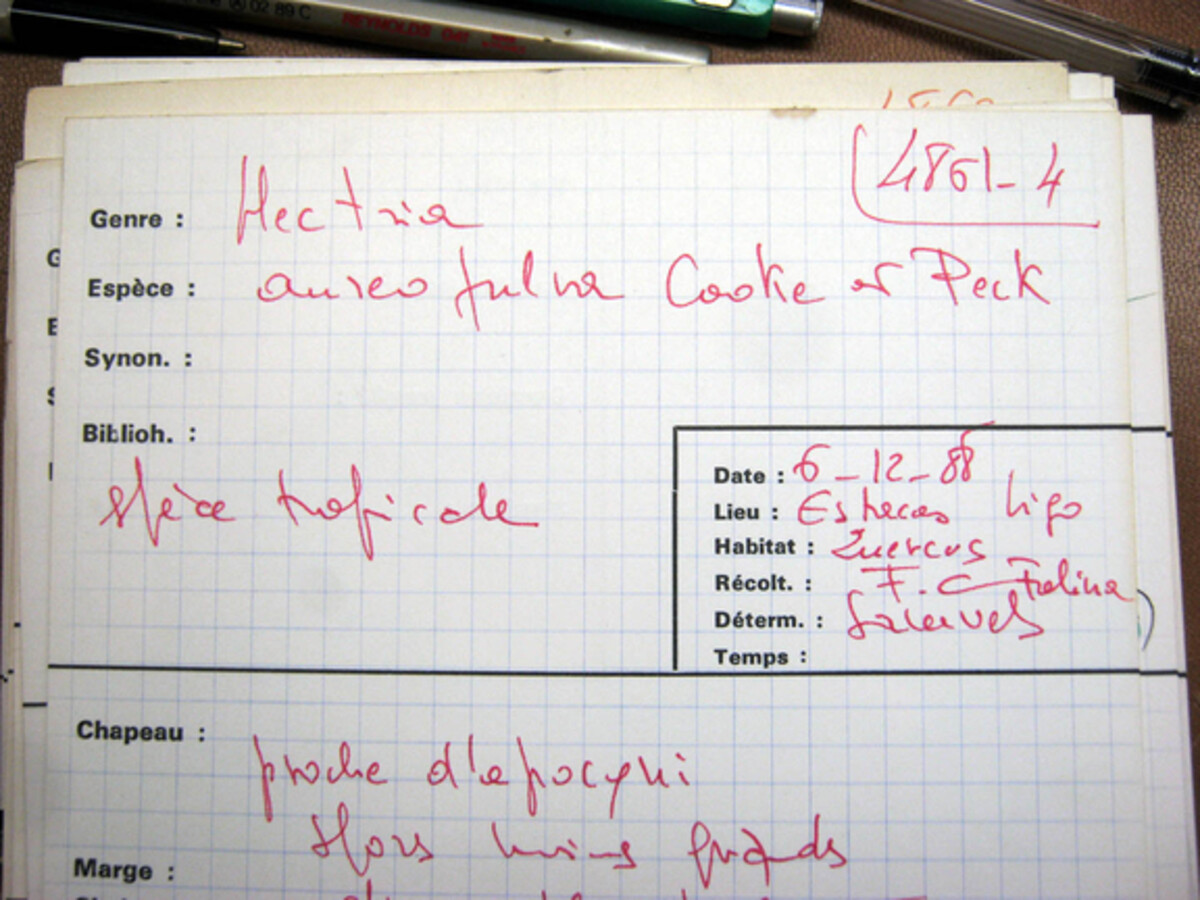 02 89 C
REYNOLDS
4861-4
Genre : Nectria
Espèce : aureofulva Cooke et Peck
Synon. :
Biblioh. :
espèce tropicale
Date : 6-12-88
Lieu : Vigo
Habitat : Quercus
Récolt. : F.
Déterm. :
Temps :
Chapeau :
proche d'apocyni
spores moins grands
Marge :